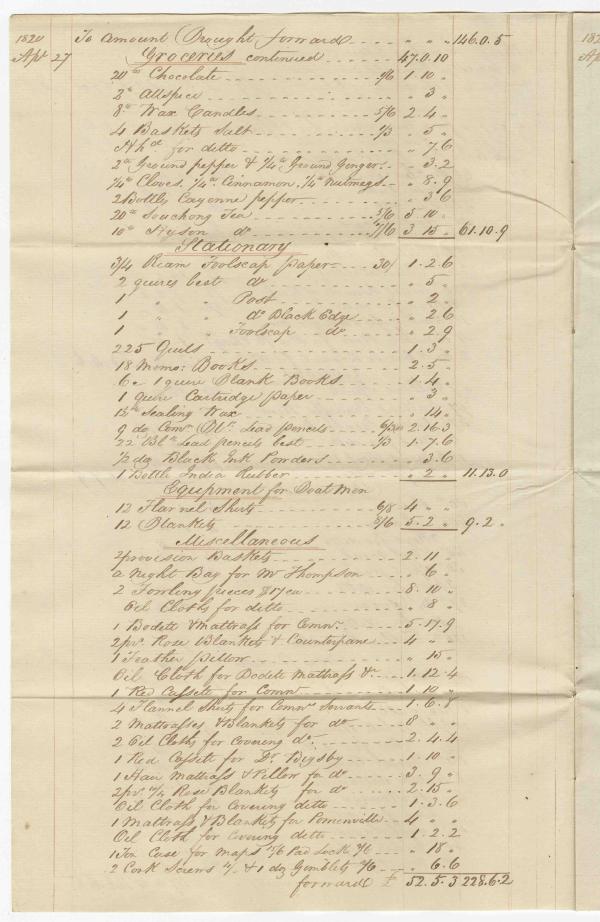 1820 To amount Brought forward " " " 146.0.5
Apr 27 Groceries continued 47.0.10
20lb Chocolate 1/6 1.10 "
2lb Allspice " 3 "
8lb Wax Candles 5/6 2.4 "
4 Baskets Salt 1/3 " 5 "
A hd for ditto " 7.6
2lb Ground pepper & 1/4lb Ground Ginger " 3.2
1/4lb Cloves, 1/4lb Cinnamon, 1/4lb Nutmegs " 8.9
2 Bottles Cayenne pepper " 3 6
20lb Souchong Tea 5/6 5 10 "
10lb Hyson do 7/6 3.15 " 61.10.9
Stationary
3/4 Ream Foolscap paper 30/ 1.2.6
2 quires best do " 5 "
1 " " Post " 2 "
1 " " do Black Edge " 2 6
1 " " Foolscap do " 2.9
225 Quils 1.3 "
18 Memo: Books 2.5 "
6 1 quire Blank Books 1.4 "
1 quire Cartridge paper " 3 "
Sealing Wax " 14 "
9 dz Comn Blk Lead pencils 6/3 2.16.3
22 Blk Lead pencils best 1/3 1.7.6
1/2 dz Black Ink Powders " 3.6
1 Bottle India Rubber " 2 " 11.13.0
Equipment for Boat Men
12 Flannel Shirts 6/8 4 " "
12 Blankets 8/6 5.2 " 9.2 "
Miscellaneous
2 provision Baskets 2.11 "
a Night Bag for Mr Thompson " 6 "
2 Fowling pieces 8.10 "
Oil Cloths for ditto " 8 "
1 Bodett & Mattrass for Comnr 5.17.9
2 pr Rose Blankets & Counterpane 4 " "
1 Feather pillow " 15 "
Oil Cloth for Bodette Mattrass &c 1.12.4
1 Red Cassette for Comnr 1.10 "
4 Flannel Shirts for Comnr Servants 1.6.8
2 Mattrasses & Blankets for do 8 " "
2 Oil Cloths for covering do 2.4.4
1 Red Cassette for Dr Bigsby 1.10 "
1 Hair Mattrass & Pillow for do 3.9 "
2 pr Rose Blankets for do 2.15 "
Oil Cloth for Covering ditto 1.3.6
1 Mattrass & Blankets for Pomenville 4 " "
Oil Cloth for covering ditto 1.2.2
1 Tin Case for maps 15/6 Pad Lock " 18 "
2 Cork Screws & 1 dz Gimblets " 6.6
forward £ 52.5.3 228.6.2
182
Ap